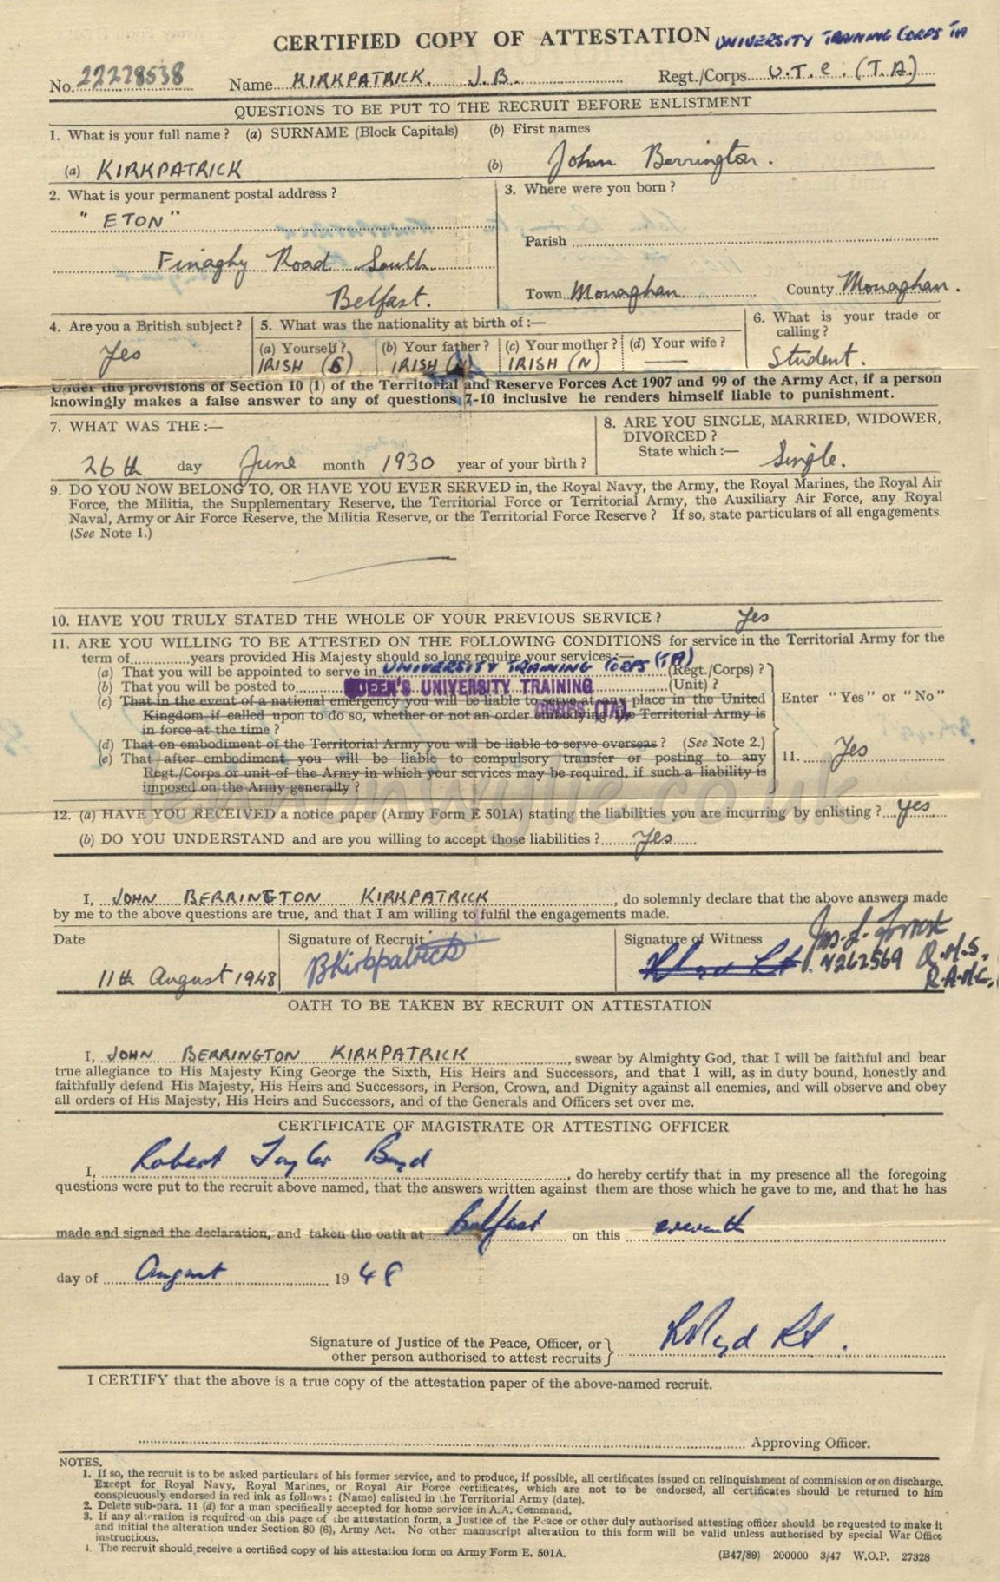 CERTIFIED COPY OF ATTESTATION UNIVERSITY TRAINING CORPS TA
No. 22278538 Name KIRKPATRICK. J.B. Regt./Corps U.T.C. (T.A.)
QUESTIONS TO BE PUT TO THE RECRUIT BEFORE ENLISTMENT
1. What is your full name? (a) SURNAME (Block Capitals) (b) First names
(a) KIRKPATRICK (b) John Berrington.
2. What is your permanent postal address? 3. Where were you born?
"ETON"
Parish
Finaghy Road South
Belfast. Town Monaghan County Monaghan.
4. Are you a British subject? 5. What was the nationality at birth of:— 6. What is your trade or calling?
(a) Yourself? (b) Your father? (c) Your mother? (d) Your wife?
Yes IRISH IRISH (N) IRISH (N) — Student.
Under the provisions of Section 10 (1) of the Territorial and Reserve Forces Act 1907 and 99 of the Army Act, if a person
knowingly makes a false answer to any of questions 7-10 inclusive he renders himself liable to punishment.
7. WHAT WAS THE:— 8. ARE YOU SINGLE, MARRIED, WIDOWER,
DIVORCED?
State which:— Single.
26th day June month 1930 year of your birth?
9. DO YOU NOW BELONG TO, OR HAVE YOU EVER SERVED in, the Royal Navy, the Army, the Royal Marines, the Royal Air
Force, the Militia, the Supplementary Reserve, the Territorial Force or Territorial Army, the Auxiliary Air Force, any Royal
Naval, Army or Air Force Reserve, the Militia Reserve, or the Territorial Force Reserve? If so, state particulars of all engagements.
(See Note 1.)
10. HAVE YOU TRULY STATED THE WHOLE OF YOUR PREVIOUS SERVICE? Yes
11. ARE YOU WILLING TO BE ATTESTED ON THE FOLLOWING CONDITIONS for service in the Territorial Army for the
term of years provided His Majesty should so long require your services:—
(a) That you will be appointed to serve in UNIVERSITY TRAINING CORPS (TA) (Regt./Corps)?
(b) That you will be posted to QUEEN'S UNIVERSITY TRAINING (Unit)?
CORPS (TA).
(c) That in the event of a national emergency you will be liable to serve at any place in the United Enter "Yes" or "No"
Kingdom if called upon to do so, whether or not an order embodying the Territorial Army is
in force at the time?
(d) That on embodiment of the Territorial Army you will be liable to serve overseas? (See Note 2.)
(e) That after embodiment you will be liable to compulsory transfer or posting to any 11. Yes
Regt./Corps or unit of the Army in which your services may be required, if such a liability is
imposed on the Army generally?
lennonwylie.co.uk
12. (a) HAVE YOU RECEIVED a notice paper (Army Form E 501A) stating the liabilities you are incurring by enlisting? Yes
(b) DO YOU UNDERSTAND and are you willing to accept those liabilities? Yes
I, JOHN BERRINGTON KIRKPATRICK, do solemnly declare that the above answers made
by me to the above questions are true, and that I am willing to fulfil the engagements made.
Date Signature of Recruit Signature of Witness
11th August 1948 BKirkpatrick 7262569 Q.M.S.
R.A.M.C.
OATH TO BE TAKEN BY RECRUIT ON ATTESTATION
I, JOHN BERRINGTON KIRKPATRICK, swear by Almighty God, that I will be faithful and bear
true allegiance to His Majesty King George the Sixth, His Heirs and Successors, and that I will, as in duty bound, honestly and
faithfully defend His Majesty, His Heirs and Successors, in Person, Crown, and Dignity against all enemies, and will observe and obey
all orders of His Majesty, His Heirs and Successors, and of the Generals and Officers set over me.
CERTIFICATE OF MAGISTRATE OR ATTESTING OFFICER
I, Robert Taylor Boyd, do hereby certify that in my presence all the foregoing
questions were put to the recruit above named, that the answers written against them are those which he gave to me, and that he has
made and signed the declaration, and taken the oath at Belfast on this eleventh
day of August 1948
Signature of Justice of the Peace, Officer, or
other person authorised to attest recruits
I CERTIFY that the above is a true copy of the attestation paper of the above-named recruit.
Approving Officer.
NOTES.
1. If so, the recruit is to be asked particulars of his former service, and to produce, if possible, all certificates issued on relinquishment of commission or on discharge.
Except for Royal Navy, Royal Marines, or Royal Air Force certificates, which are not to be endorsed, all certificates should be returned to him
conspicuously endorsed in red ink as follows: (Name) enlisted in the Territorial Army (date).
2. Delete sub-para. 11 (d) for a man specifically accepted for home service in A.A. Command.
3. If any alteration is required on this page of the attestation form, a Justice of the Peace or other duly authorised attesting officer should be requested to make it
and initial the alteration under Section 80 (6), Army Act. No other manuscript alteration to this form will be valid unless authorised by special War Office
instructions.
4. The recruit should receive a certified copy of his attestation form on Army Form E. 501A.
(B47/89) 200000 3/47 W.O.P. 27328